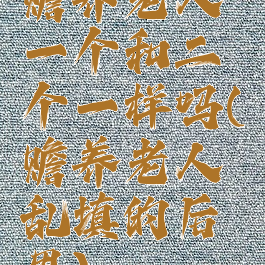 赡养老人
一个和二
个一样吗(
赡养老人
乱填的后
果)